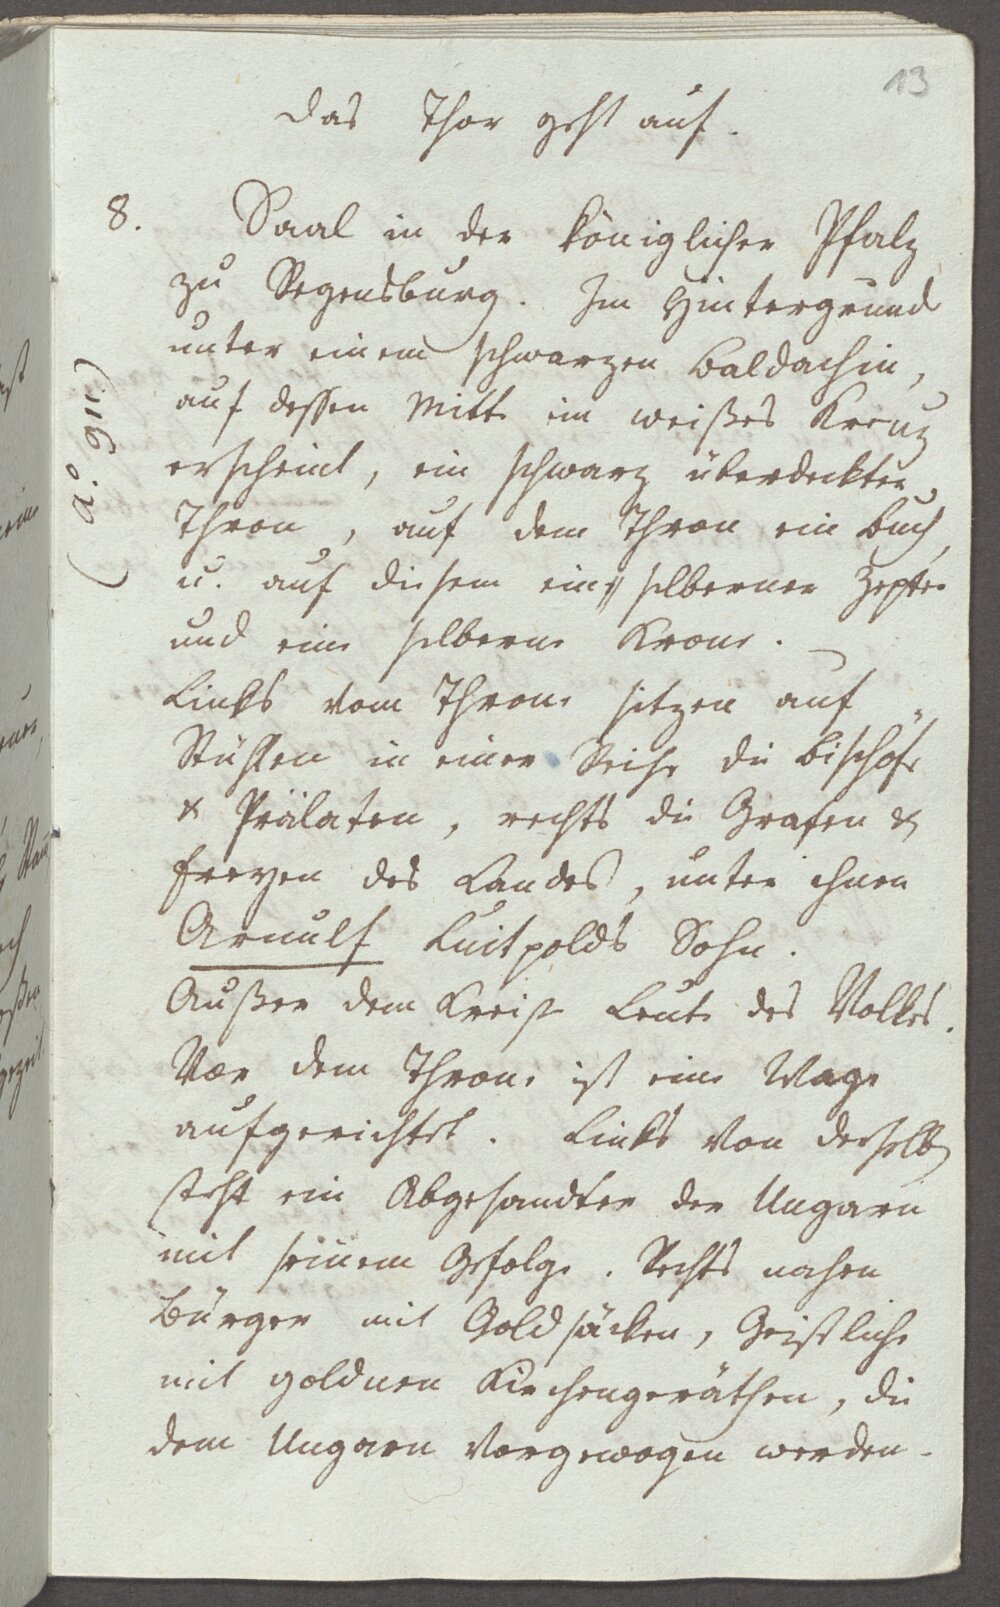 13
das Thor geht auf.
8. Saal in der königlicher Pfalz
zu Regensburg. Im Hintergrund
unter einem schwarzen Baldachin,
auf dessen Mitte im weißes Kreuz
erscheint, ein schwarz überdeckter
Thron, auf dem Thron ein Buch,
u. auf diesem ein silberner Zepter
und eine silberne Krone.
(a.o 911.)
Links vom Throne sitzen auf
Stühlen in einer Reihe die Bischöfe
& Prälaten, rechts die Grafen &
Freyen des Landes, unter ihnen
Arnulf Luitpolds Sohn.
Außer dem Kreise Leute des Volkes.
Vor dem Throne ist eine Wage
aufgerichtet. Links von derselb
steht ein Abgesandter der Ungarn
mit seinem Gefolge. Rechts nahen
Bürger mit Goldsäcken, Geistliche
mit goldnen Kirchengeräthen, die
dem Ungarn vorgewogen werden.